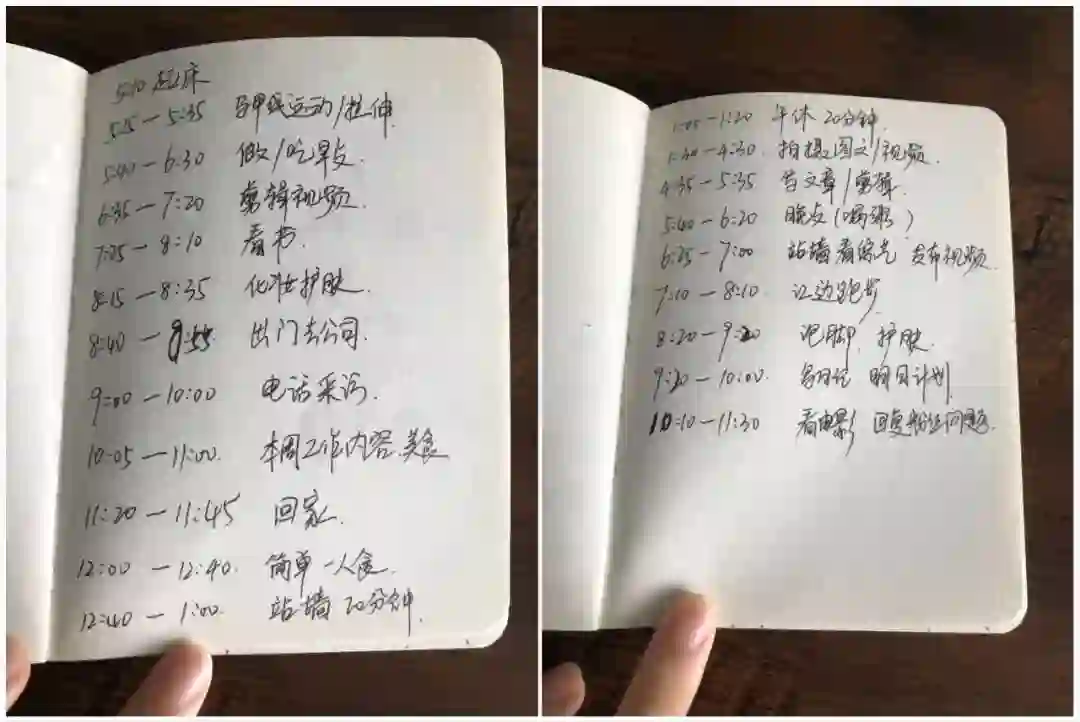 5:10 起床
5:15 — 5:35 马甲线运动/拉伸.
5:40 — 6:30 做/吃早点.
6:35 — 7:20 剪辑视频.
7:25 — 8:10 看书.
8:15 — 8:35 化妆护肤.
8:40 — 8:55 出门去公司.
9:00 — 10:00 电话采访.
10:05 — 11:00. 本周工作内容.美食
11:20 — 11:45 回家.
12:00 — 12:40. 简单一人食.
12:40 — 1:00. 站墙 20分钟.
1:05 — 1:20 午休 20分钟.
1:30 — 4:30. 拍摄图文/视频.
4:35 — 5:35 写文章/剪辑.
5:40 — 6:20 晚点(喝粥)
6:25 — 7:00 站墙看综艺 发布视频.
7:10 — 8:10 江边跑步.
8:20 — 9:20 泡脚. 护肤.
9:20 — 10:00. 写日记 明日计划
10:10 — 11:30 看电影 回复粉丝问题.